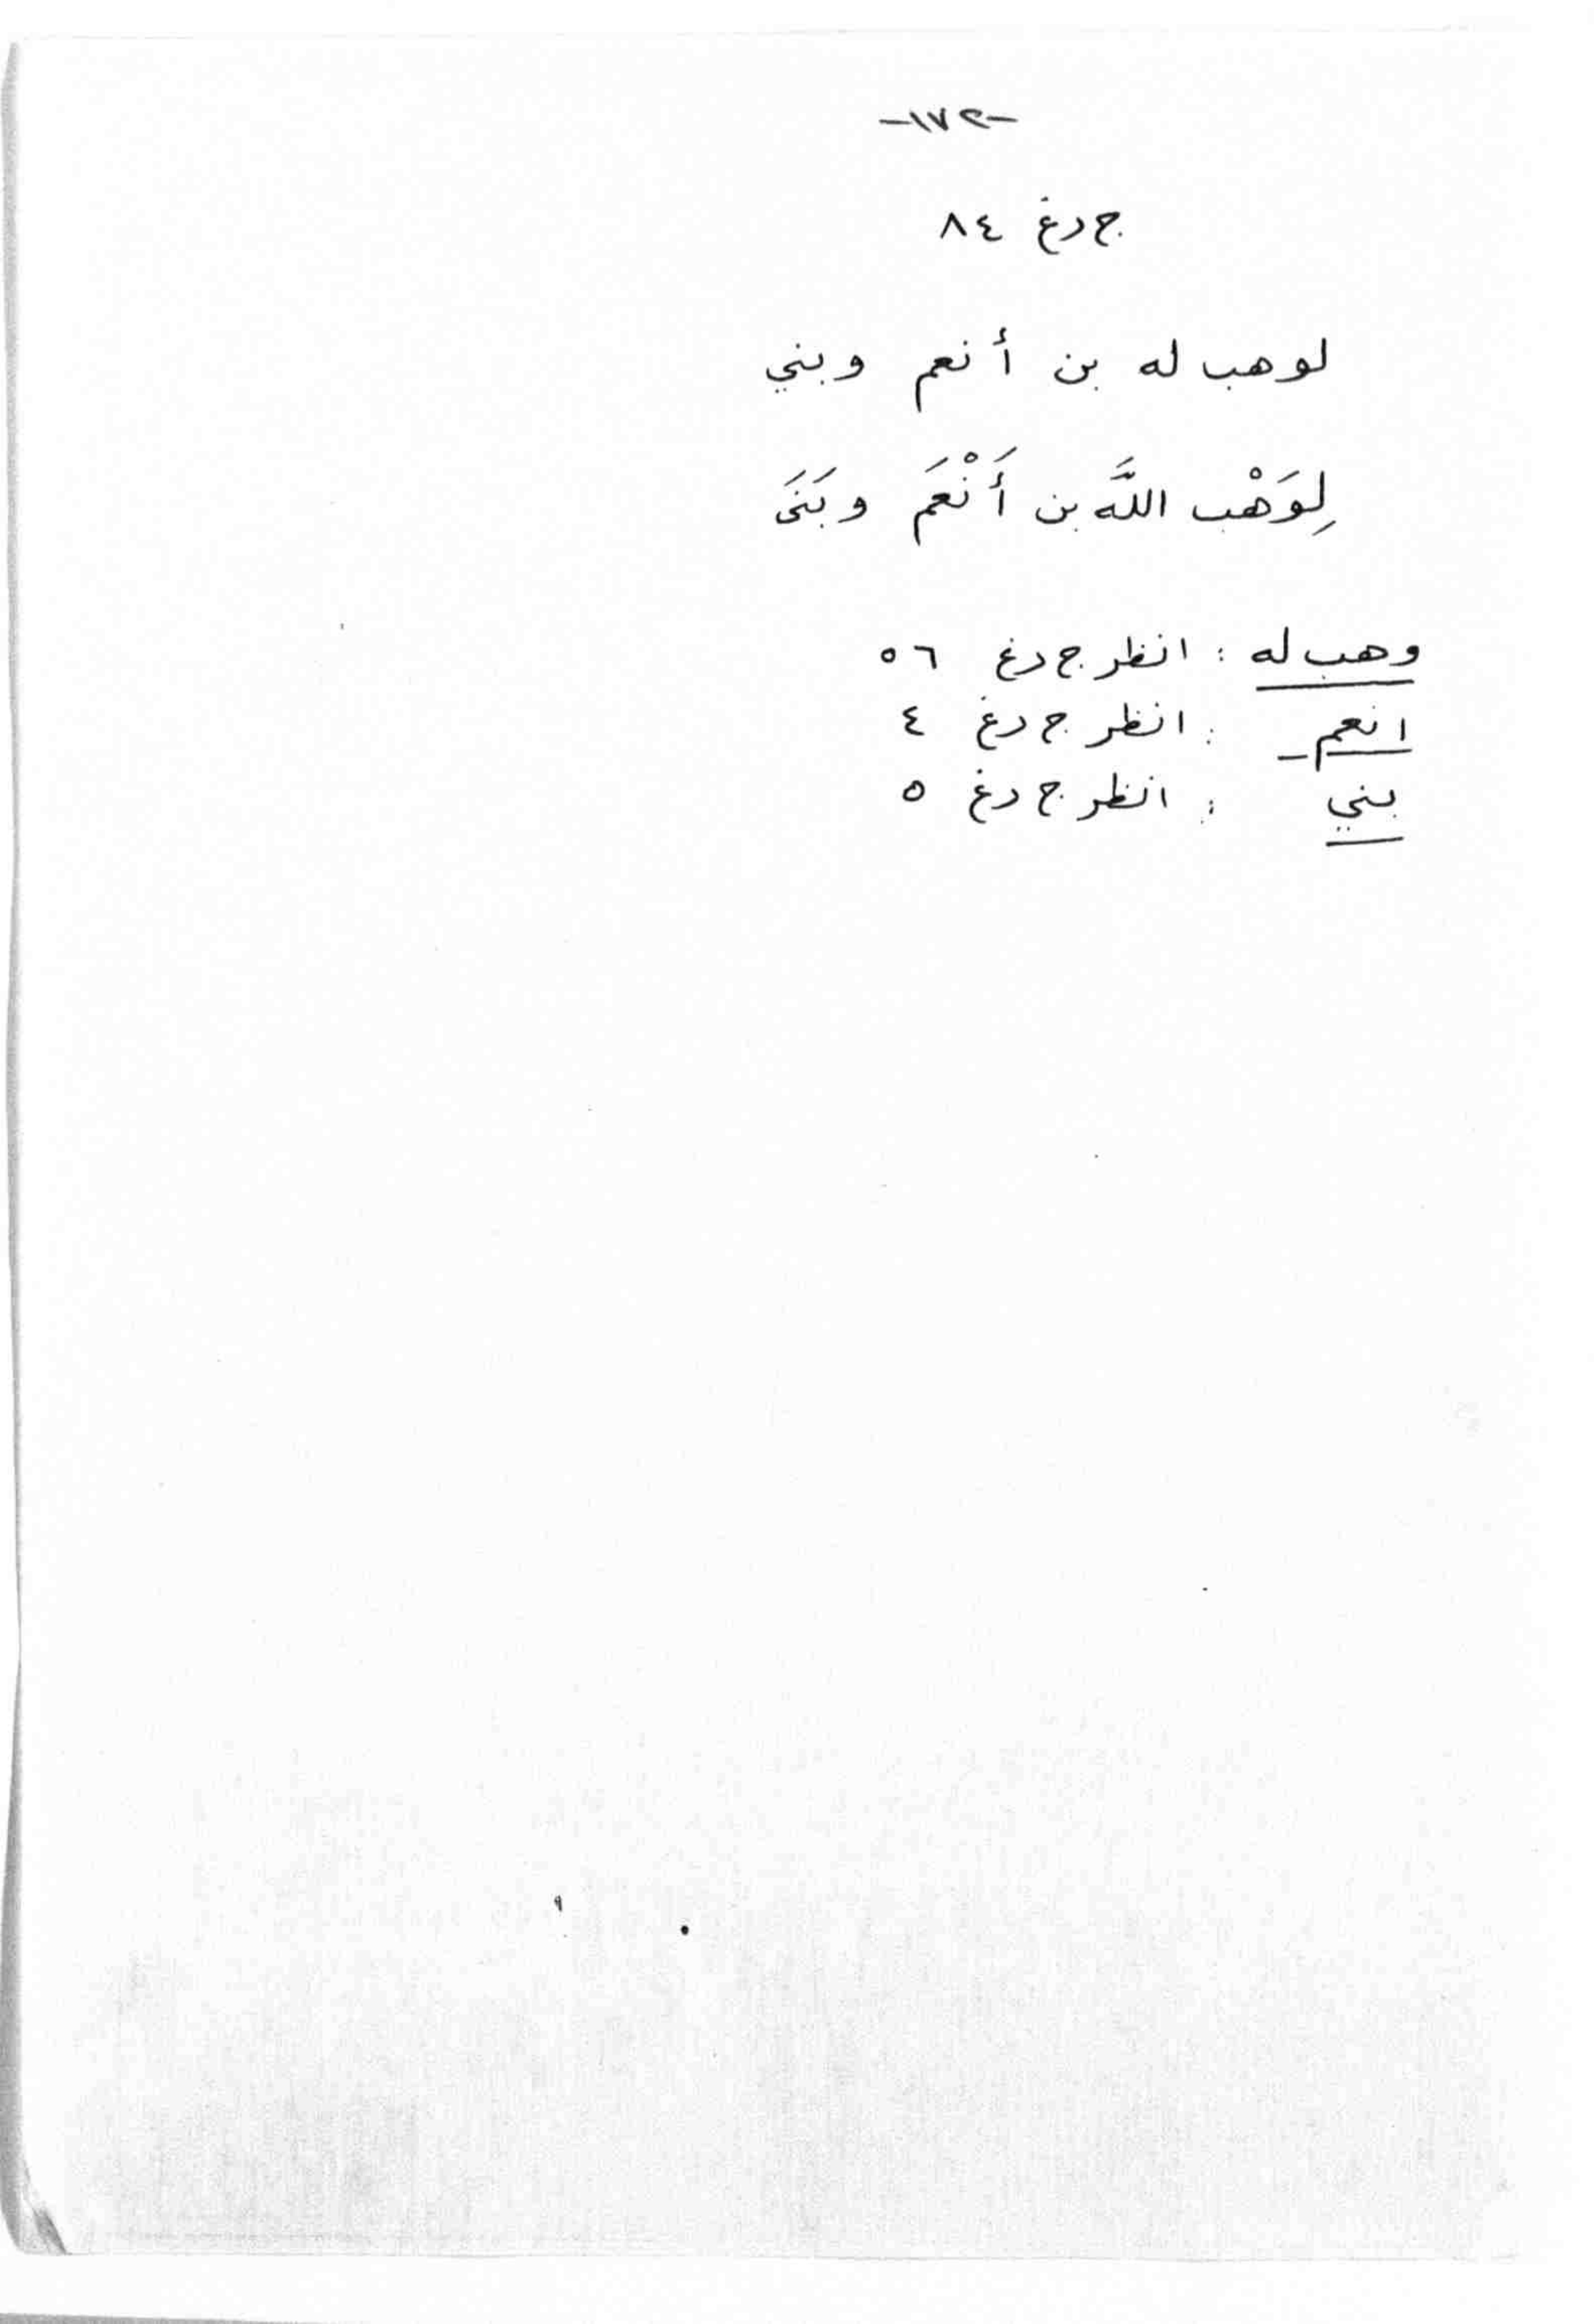 -١٧٢-
ج د غ ٨٤
لوهب له بن أنعم وبني
لِوَهْب اللَّه بن أَنْعَم وبَنَى
وهب له : انظر ج د غ ٥٦
انعم : انظر ج د غ ٤
بني : انظر ج د غ ٥